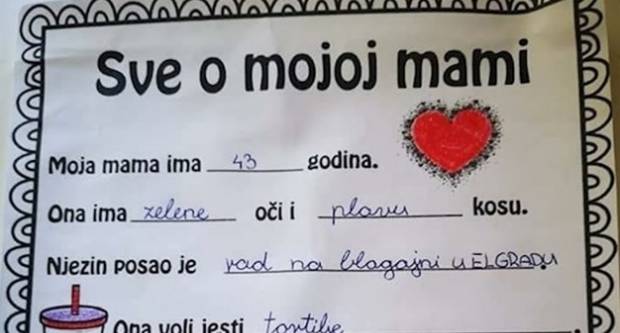 Sve o mojoj mami
Moja mama ima 43 godina.
Ona ima zelene oči i plavu kosu.
Njezin posao je rad na blagajni u ELGRADU
Ona voli jesti tortilje